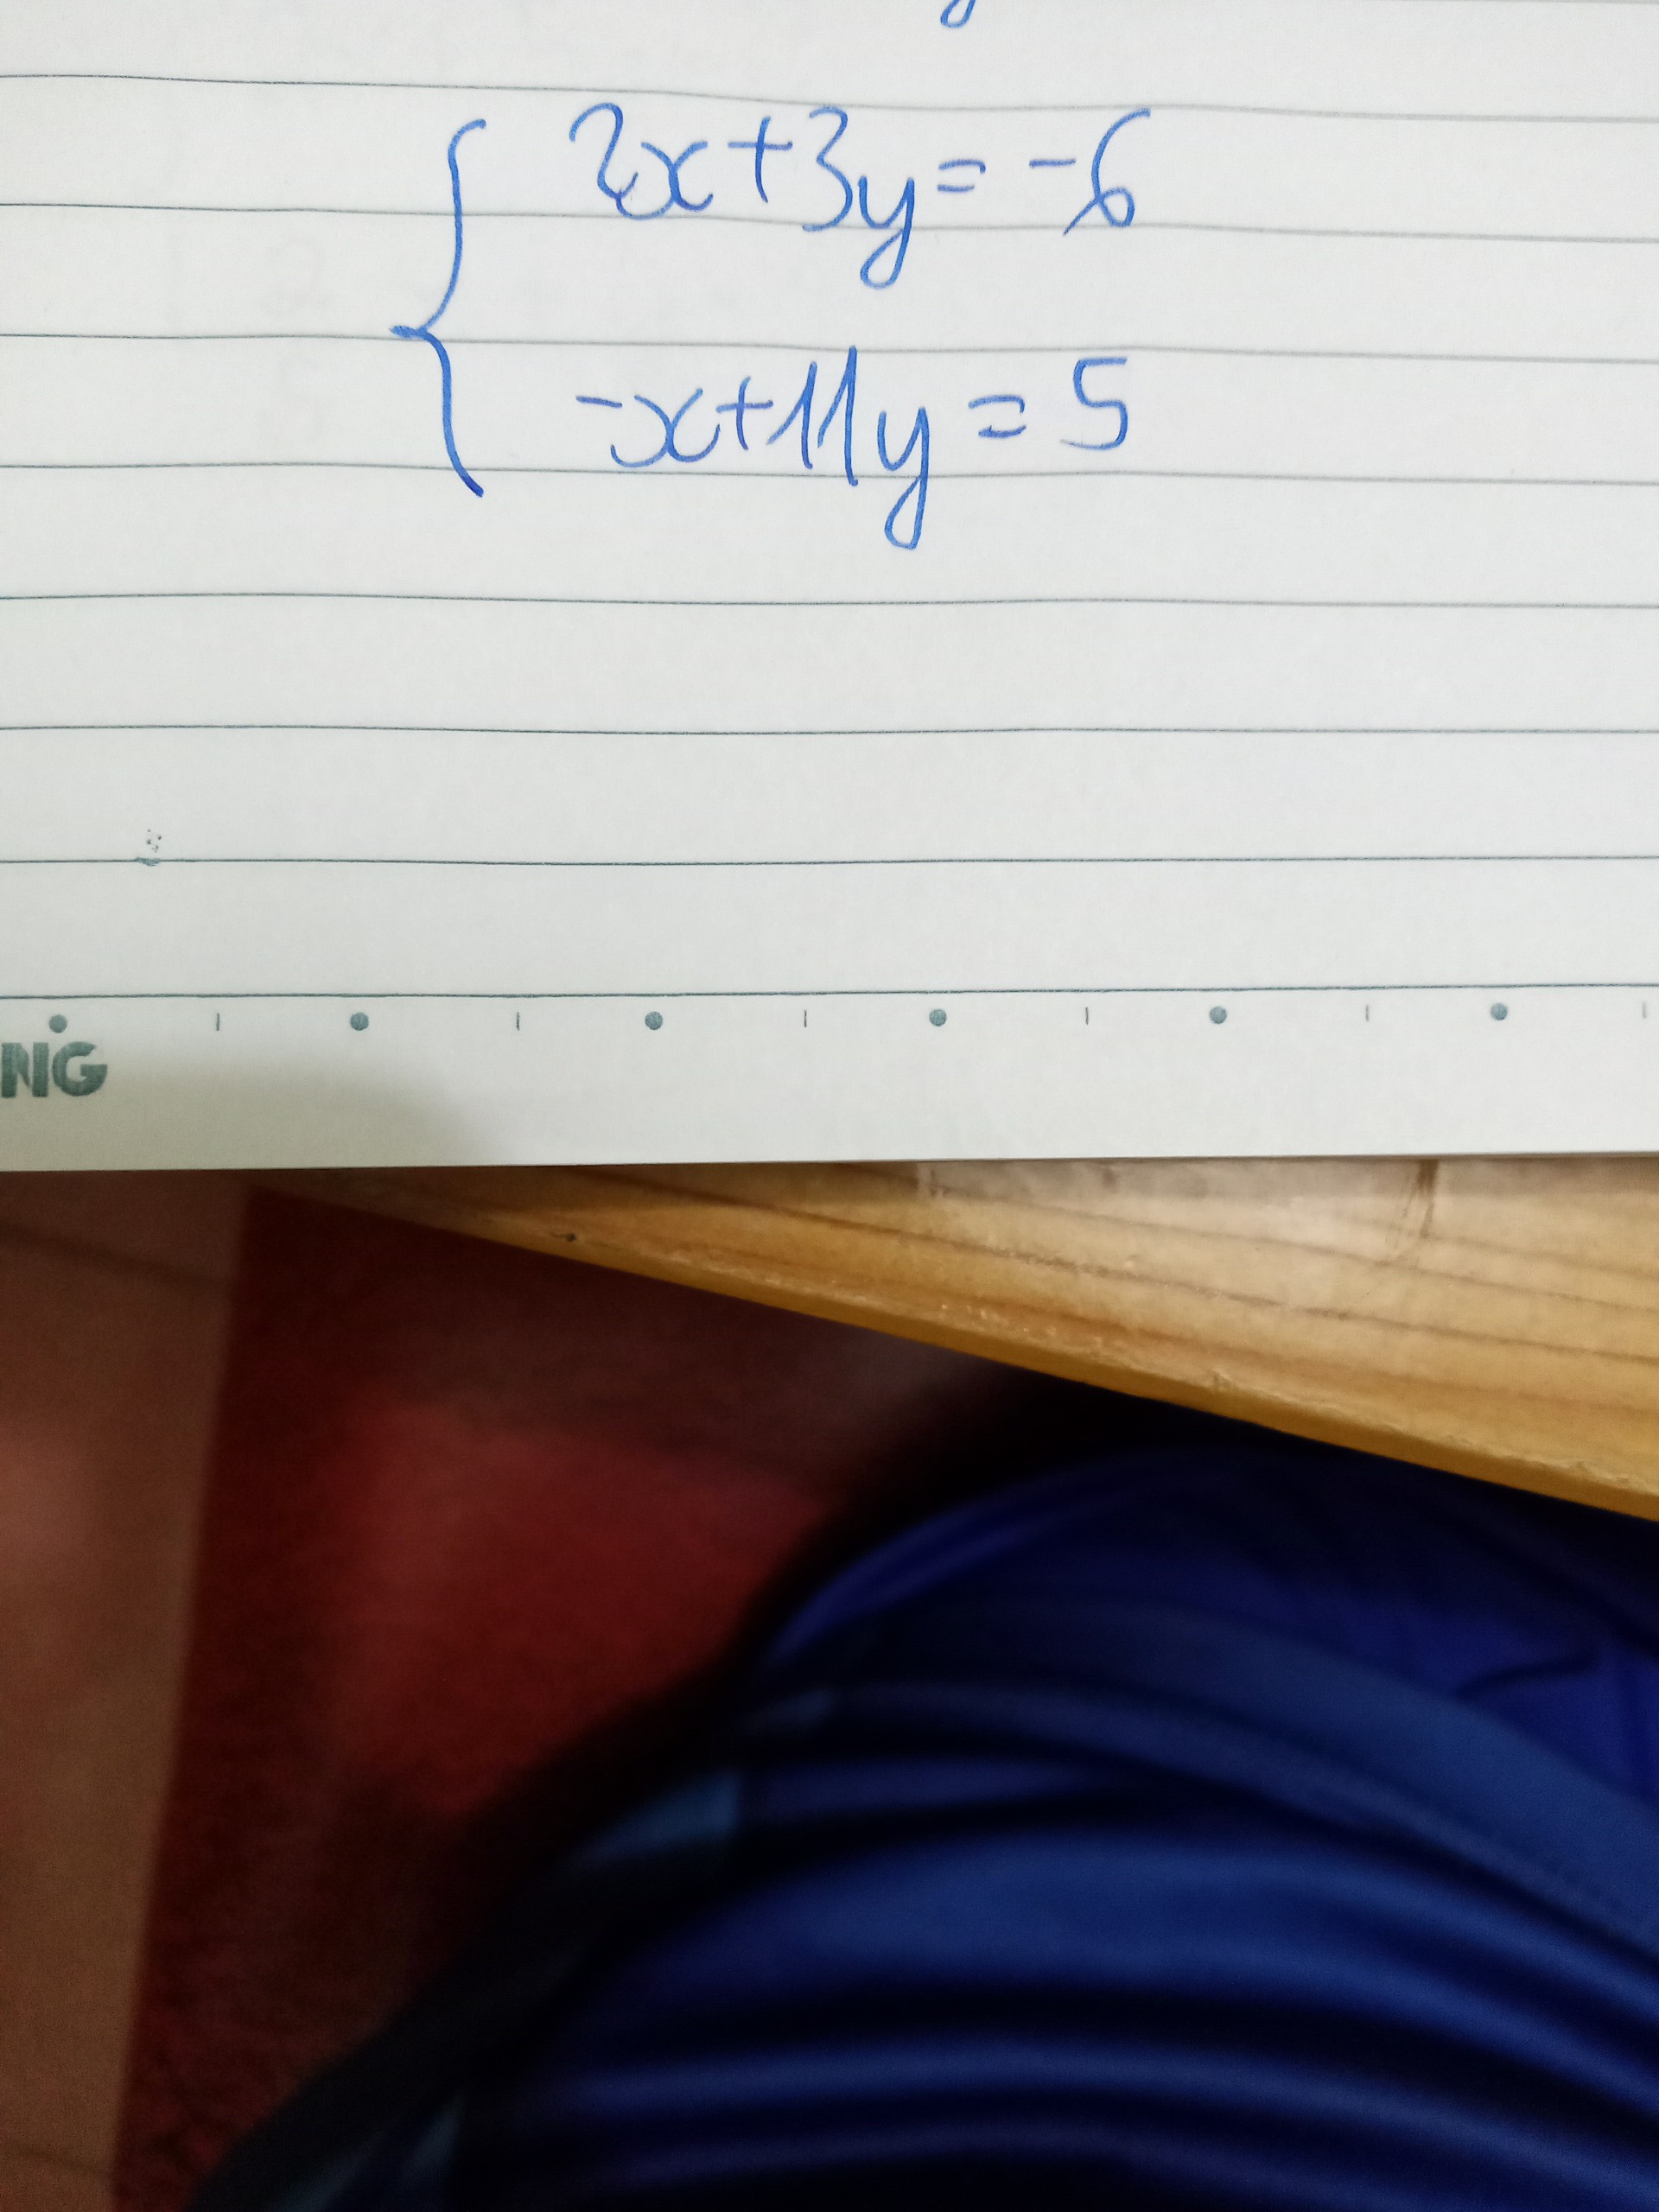 2x+3y=-6
-x+11y=5
NG